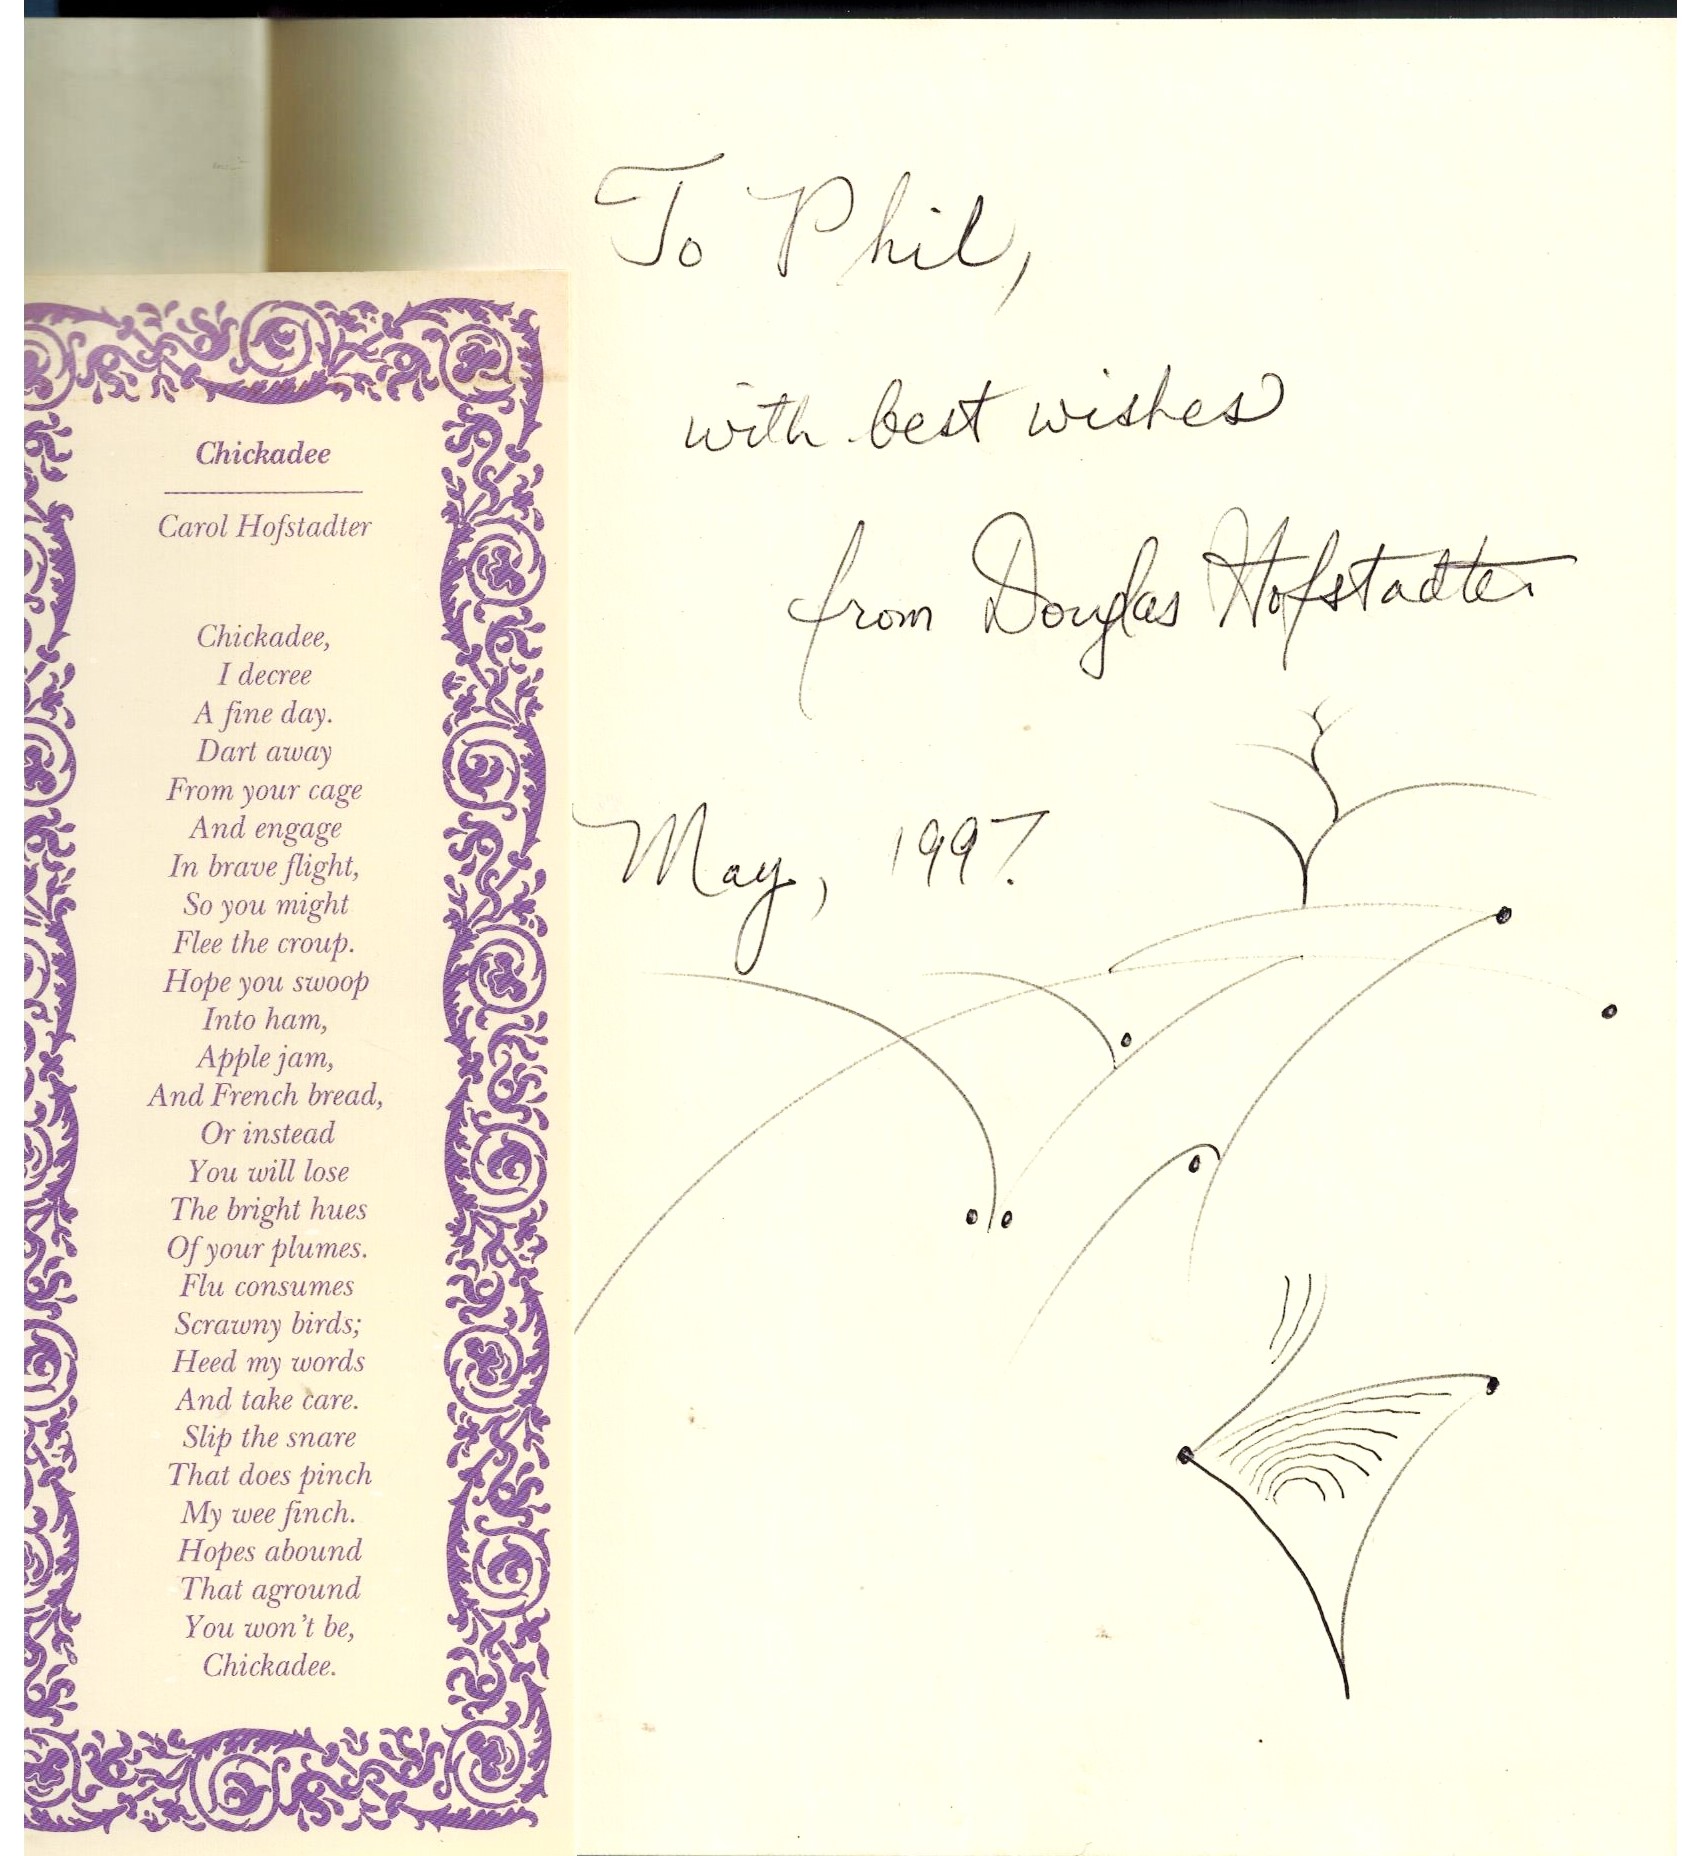 To Phil,
with best wishes
from Douglas Hofstadter
May, 1997.
Chickadee
Carol Hofstadter
Chickadee,
I decree
A fine day.
Dart away
From your cage
And engage
In brave flight,
So you might
Flee the croup.
Hope you swoop
Into ham,
Apple jam,
And French bread,
Or instead
You will lose
The bright hues
Of your plumes.
Flu consumes
Scrawny birds;
Heed my words
And take care.
Slip the snare
That does pinch
My wee finch.
Hopes abound
That aground
You won't be,
Chickadee.